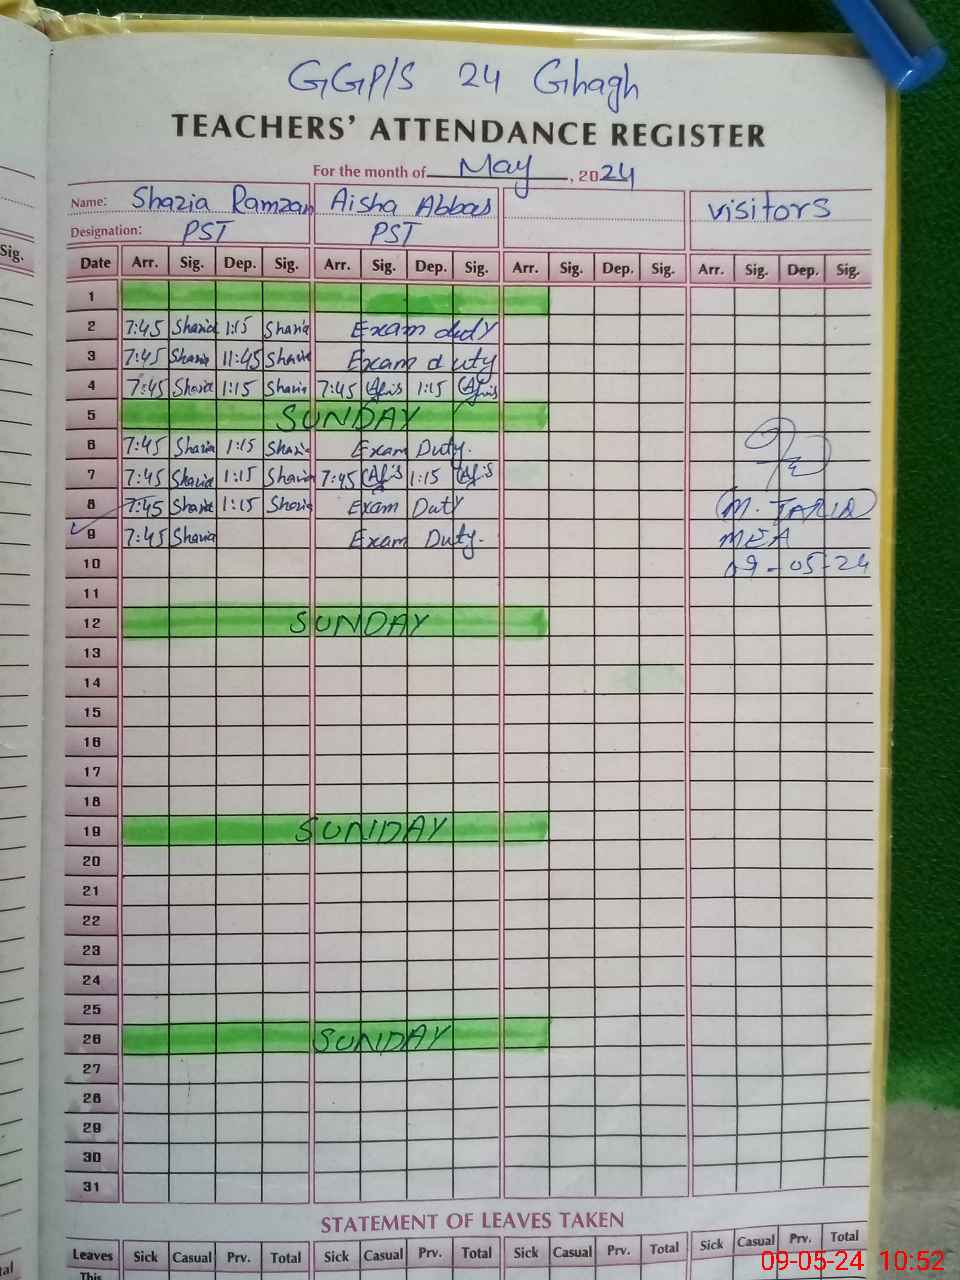 GGP/S 24 Ghagh
TEACHERS' ATTENDANCE REGISTER
For the month of May, 2024
Name: Shazia Ramzan Aisha Abbas visitors
Designation: PST PST
Sig.
Date Arr. Sig. Dep. Sig. Arr. Sig. Dep. Sig. Arr. Sig. Dep. Sig. Arr. Sig. Dep. Sig.
1
2 7:45 Shazia 1:15 Shazia Exam duty
3 7:45 Shazia 11:45 Shazia Exam duty
4 7:45 Shazia 1:15 Shazia 7:45 1:15
5 SUNDAY
6 7:45 Shazia 1:15 Shazia Exam Duty.
7 7:45 Shazia 1:15 Shazia 7:45 1:15
8 7:45 Shazia 1:15 Shazia Exam Duty M. TARIQ
9 7:45 Shazia Exam Duty. MEA
10 09-05-24
11
12 SUNDAY
13
14
15
16
17
18
19 SUNDAY
20
21
22
23
24
25
26 SUNDAY
27
28
29
30
31
STATEMENT OF LEAVES TAKEN
Leaves Sick Casual Prv. Total Sick Casual Prv. Total Sick Casual Prv. Total Sick Casual Prv. Total
This
09-05-24 10:52